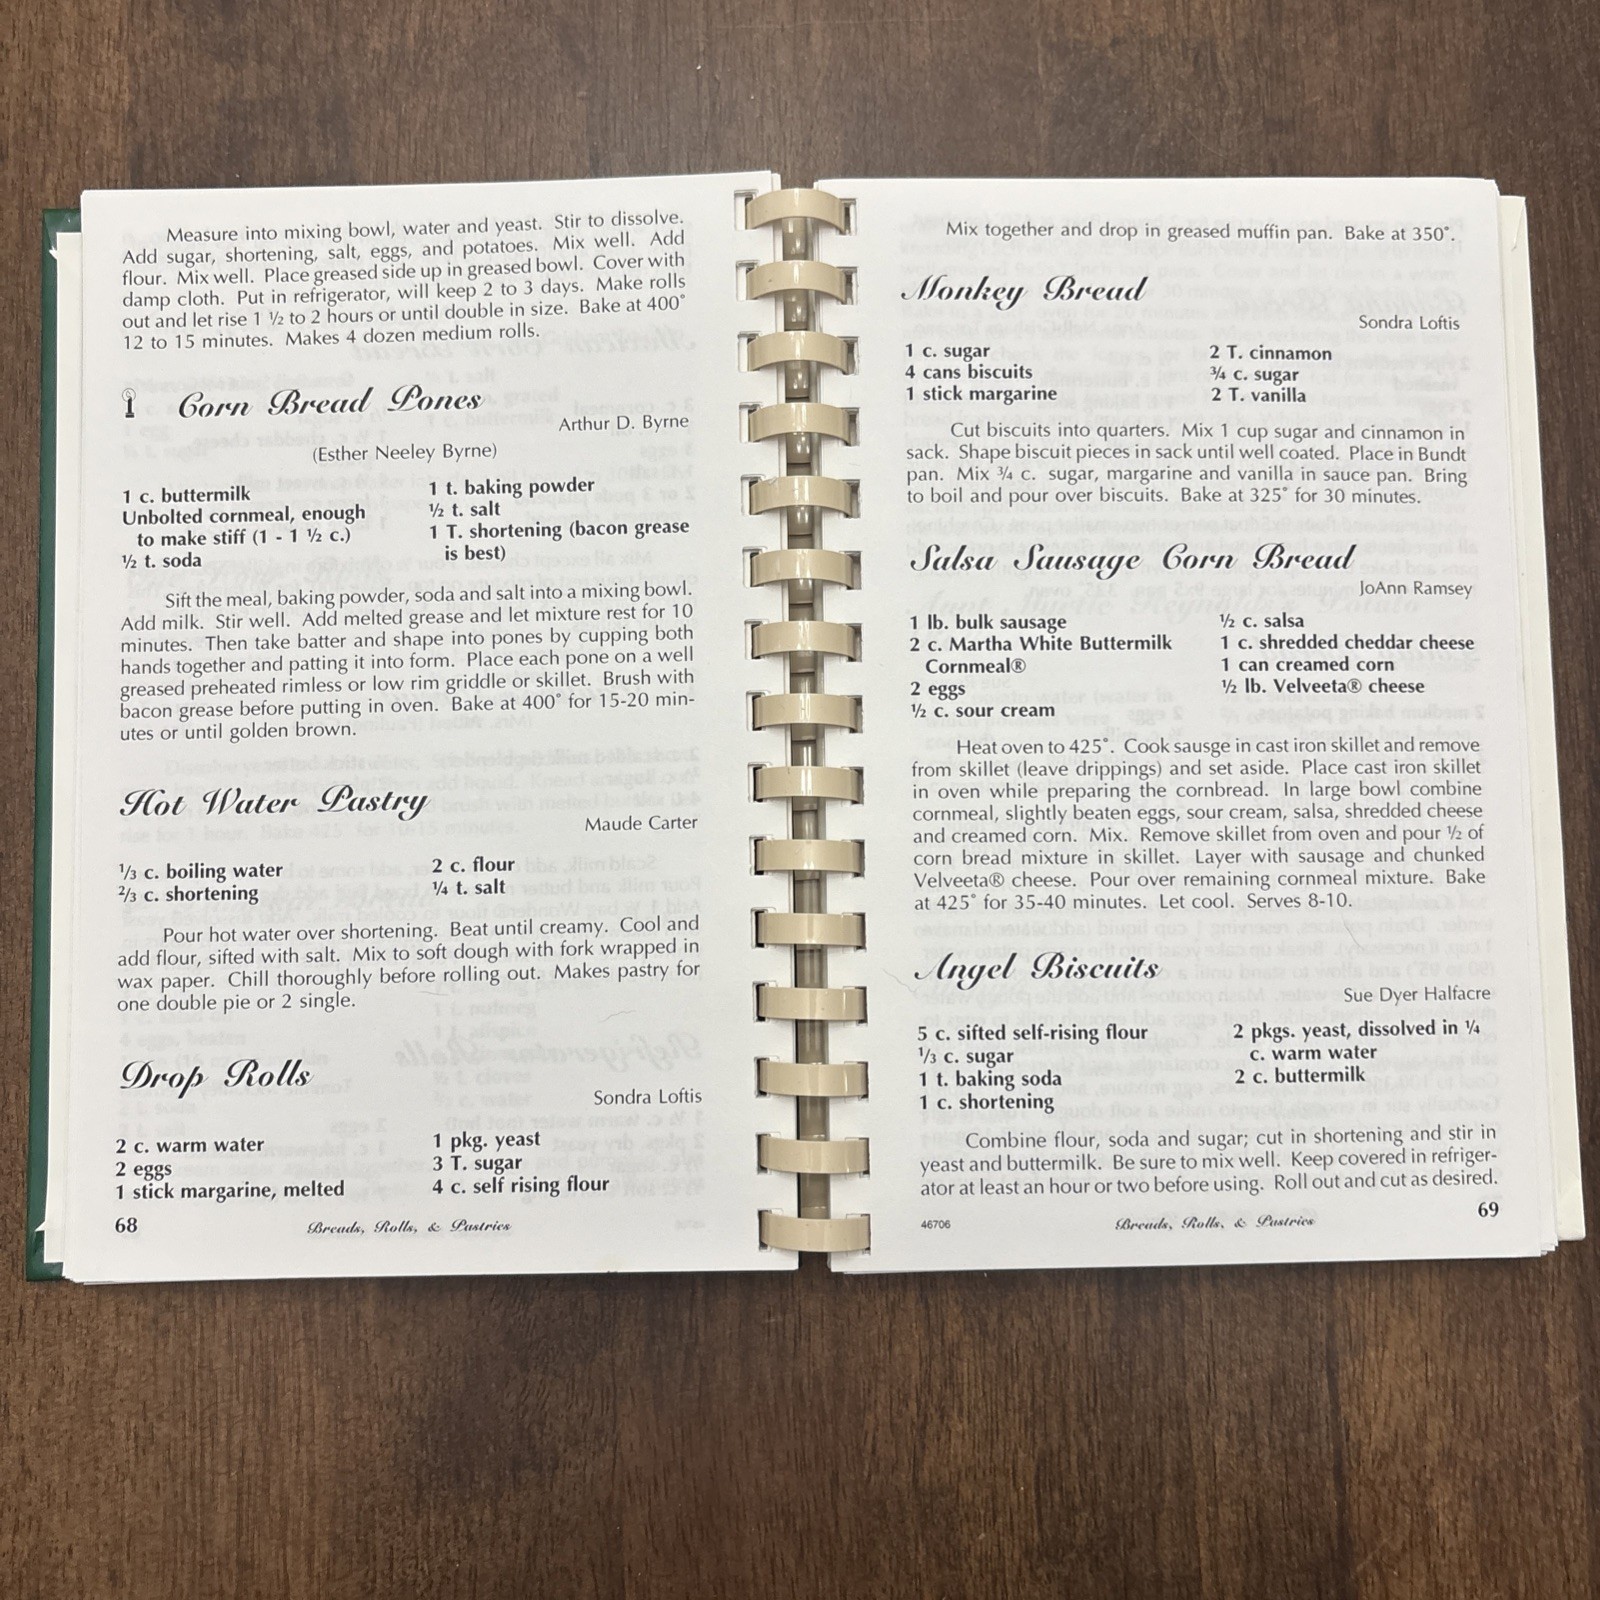 Measure into mixing bowl, water and yeast. Stir to dissolve.
Add sugar, shortening, salt, eggs, and potatoes. Mix well. Add
flour. Mix well. Place greased side up in greased bowl. Cover with
damp cloth. Put in refrigerator, will keep 2 to 3 days. Make rolls
out and let rise 1 ½ to 2 hours or until double in size. Bake at 400°
12 to 15 minutes. Makes 4 dozen medium rolls.
Corn Bread Pones
Arthur D. Byrne
(Esther Neeley Byrne)
1 c. buttermilk
Unbolted cornmeal, enough
to make stiff (1 - 1 ½ c.)
½ t. soda
1 t. baking powder
½ t. salt
1 T. shortening (bacon grease
is best)
Sift the meal, baking powder, soda and salt into a mixing bowl.
Add milk. Stir well. Add melted grease and let mixture rest for 10
minutes. Then take batter and shape into pones by cupping both
hands together and patting it into form. Place each pone on a well
greased preheated rimless or low rim griddle or skillet. Brush with
bacon grease before putting in oven. Bake at 400° for 15-20 min-
utes or until golden brown.
Hot Water Pastry
Maude Carter
⅓ c. boiling water
⅔ c. shortening
2 c. flour
¼ t. salt
Pour hot water over shortening. Beat until creamy. Cool and
add flour, sifted with salt. Mix to soft dough with fork wrapped in
wax paper. Chill thoroughly before rolling out. Makes pastry for
one double pie or 2 single.
Drop Rolls
Sondra Loftis
2 c. warm water
2 eggs
1 stick margarine, melted
1 pkg. yeast
3 T. sugar
4 c. self rising flour
68
Breads, Rolls, & Pastries
Mix together and drop in greased muffin pan. Bake at 350°.
Monkey Bread
Sondra Loftis
1 c. sugar
4 cans biscuits
1 stick margarine
2 T. cinnamon
¾ c. sugar
2 T. vanilla
Cut biscuits into quarters. Mix 1 cup sugar and cinnamon in
sack. Shape biscuit pieces in sack until well coated. Place in Bundt
pan. Mix ¾ c. sugar, margarine and vanilla in sauce pan. Bring
to boil and pour over biscuits. Bake at 325° for 30 minutes.
Salsa Sausage Corn Bread
JoAnn Ramsey
1 lb. bulk sausage
2 c. Martha White Buttermilk
Cornmeal®
2 eggs
½ c. sour cream
½ c. salsa
1 c. shredded cheddar cheese
1 can creamed corn
½ lb. Velveeta® cheese
Heat oven to 425°. Cook sausge in cast iron skillet and remove
from skillet (leave drippings) and set aside. Place cast iron skillet
in oven while preparing the cornbread. In large bowl combine
cornmeal, slightly beaten eggs, sour cream, salsa, shredded cheese
and creamed corn. Mix. Remove skillet from oven and pour ½ of
corn bread mixture in skillet. Layer with sausage and chunked
Velveeta® cheese. Pour over remaining cornmeal mixture. Bake
at 425° for 35-40 minutes. Let cool. Serves 8-10.
Angel Biscuits
Sue Dyer Halfacre
5 c. sifted self-rising flour
⅓ c. sugar
1 t. baking soda
1 c. shortening
2 pkgs. yeast, dissolved in ¼
c. warm water
2 c. buttermilk
Combine flour, soda and sugar; cut in shortening and stir in
yeast and buttermilk. Be sure to mix well. Keep covered in refriger-
ator at least an hour or two before using. Roll out and cut as desired.
46706
Breads, Rolls, & Pastries
69